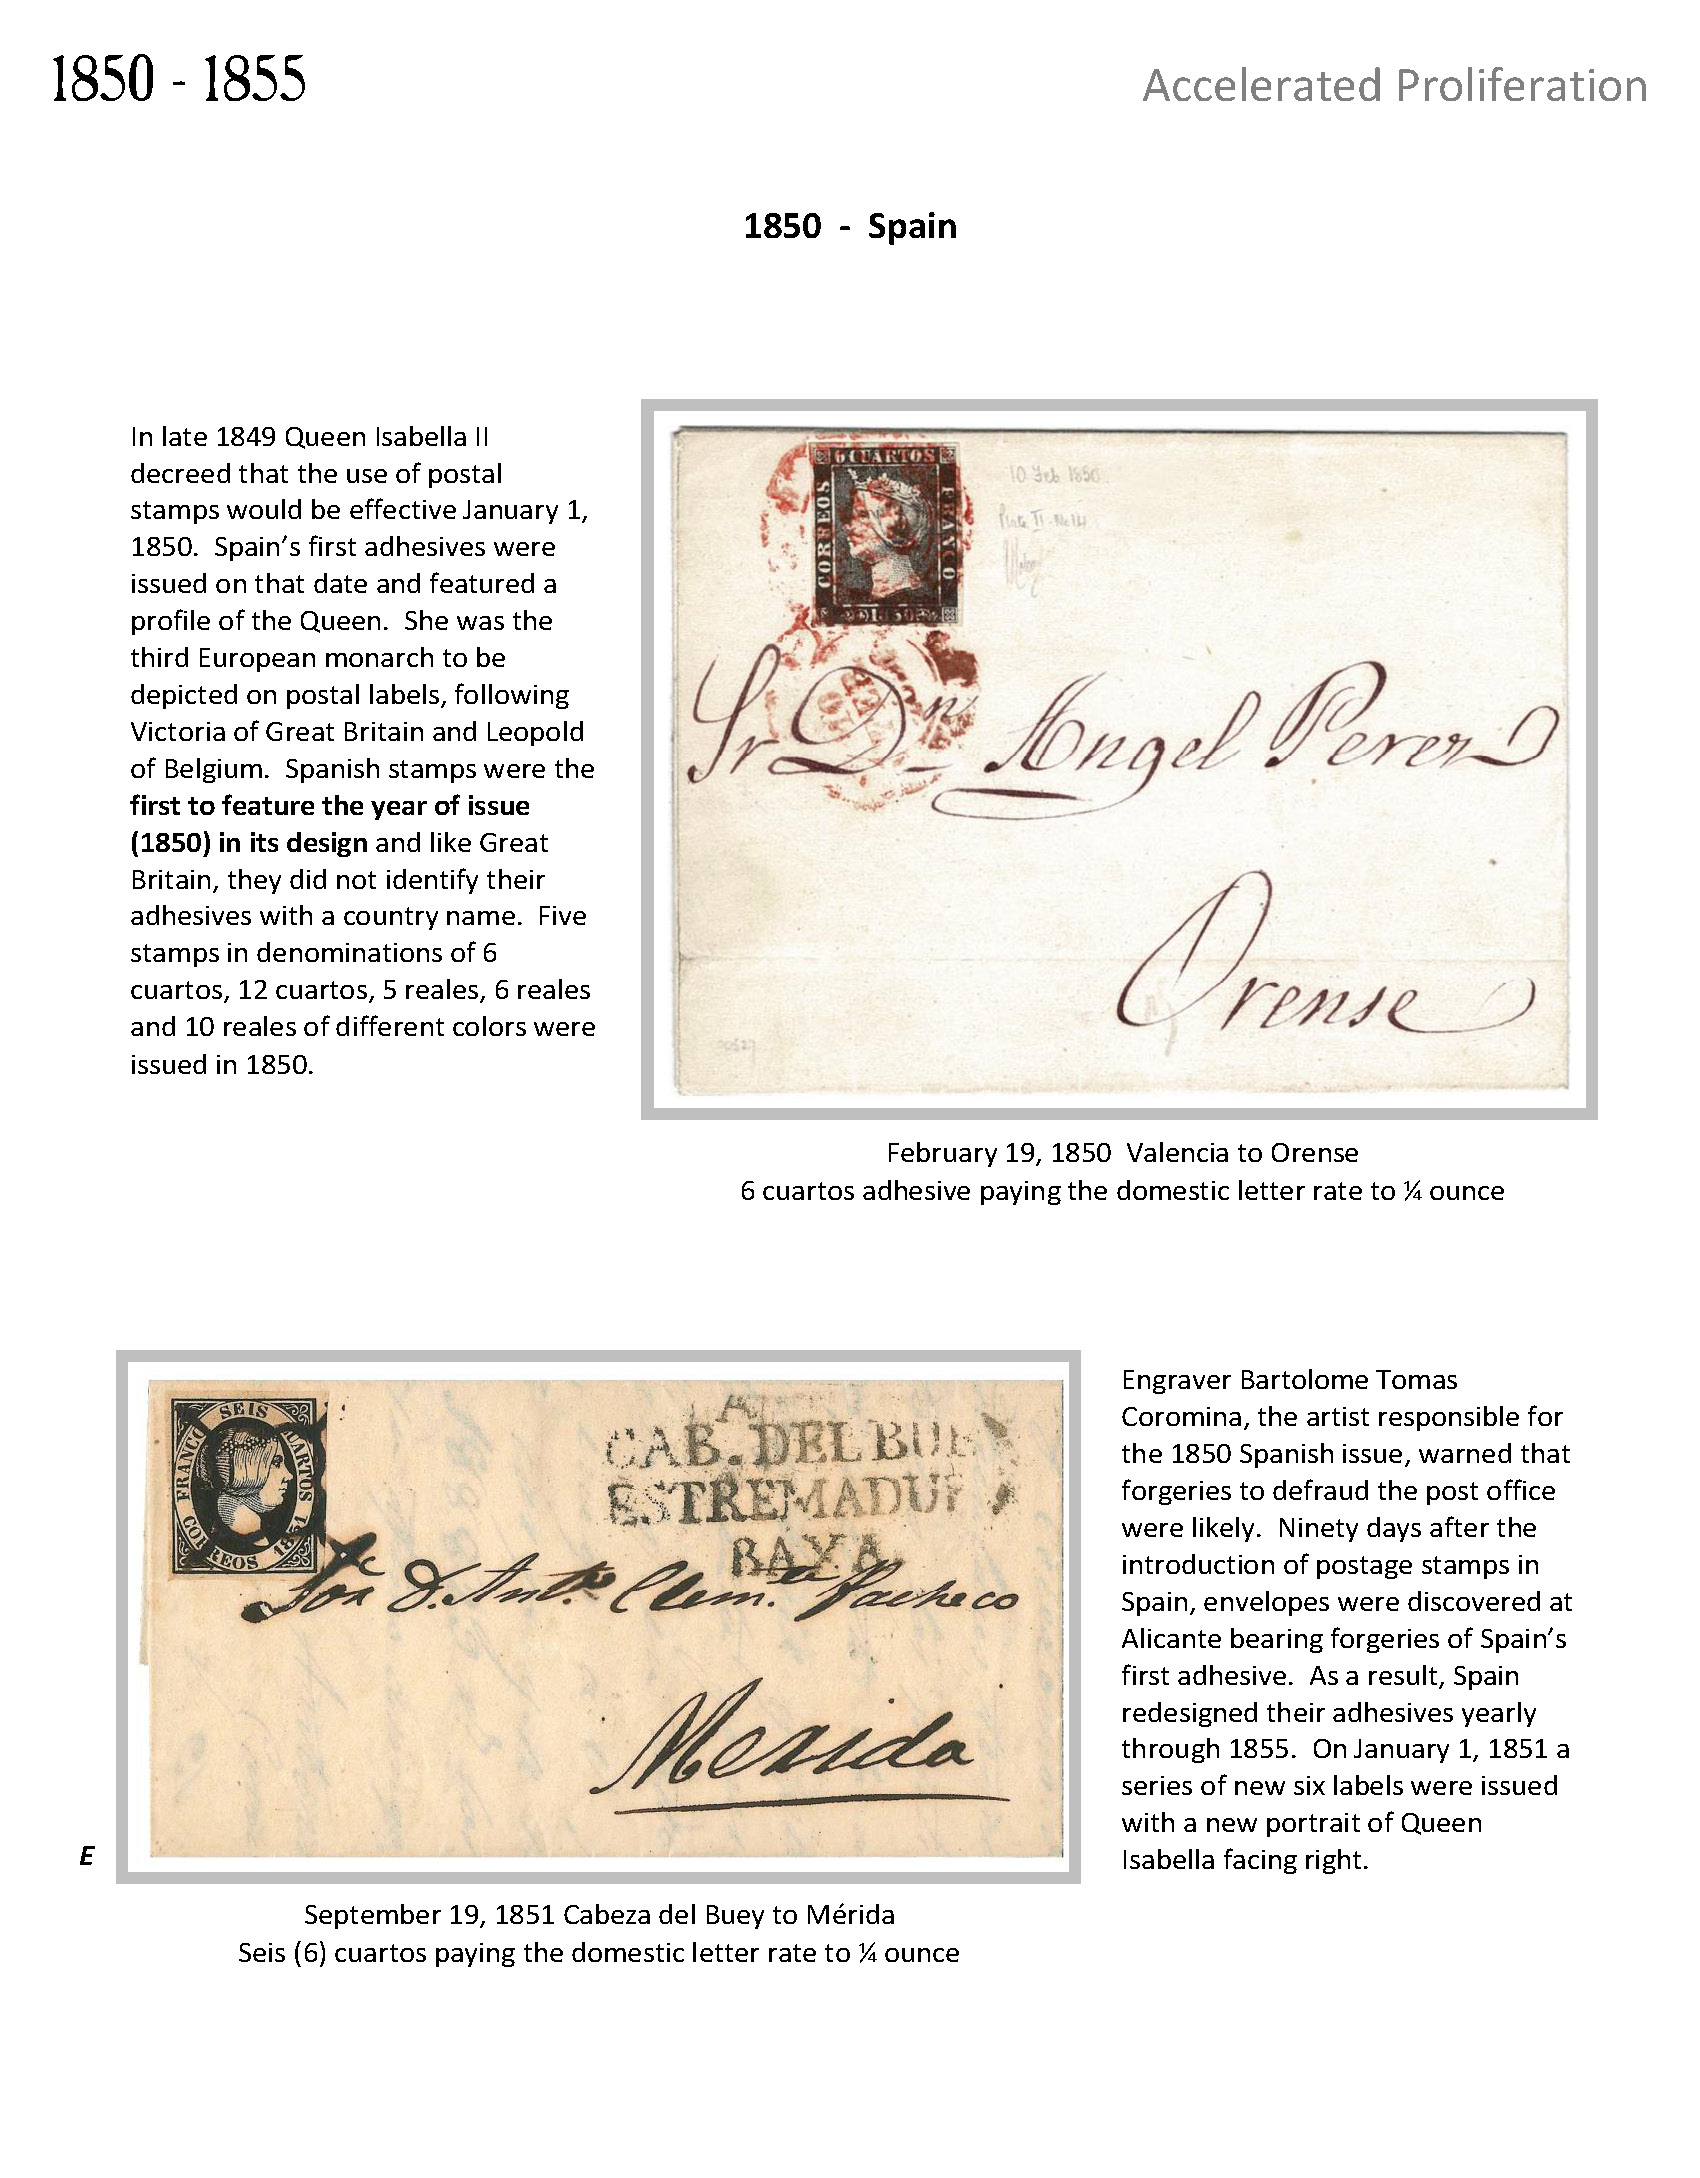 1850 - 1855
Accelerated Proliferation
1850 - Spain
In late 1849 Queen Isabella II
decreed that the use of postal
stamps would be effective January 1,
1850. Spain’s first adhesives were
issued on that date and featured a
profile of the Queen. She was the
third European monarch to be
depicted on postal labels, following
Victoria of Great Britain and Leopold
of Belgium. Spanish stamps were the
first to feature the year of issue
(1850) in its design and like Great
Britain, they did not identify their
adhesives with a country name. Five
stamps in denominations of 6
cuartos, 12 cuartos, 5 reales, 6 reales
and 10 reales of different colors were
issued in 1850.
6 CUARTOS
CORREOS
FRANCO
1850
10 Feb 1850
Sr Dn Angel Perez
Orense
February 19, 1850 Valencia to Orense
6 cuartos adhesive paying the domestic letter rate to ¼ ounce
SEIS
FRANCO
CUARTOS
CORREOS
CAB. DEL BUE
ESTREMADU
BAXA
Sor D. Anto Clemte Pacheco
Merida
E
September 19, 1851 Cabeza del Buey to Mérida
Seis (6) cuartos paying the domestic letter rate to ¼ ounce
Engraver Bartolome Tomas
Coromina, the artist responsible for
the 1850 Spanish issue, warned that
forgeries to defraud the post office
were likely. Ninety days after the
introduction of postage stamps in
Spain, envelopes were discovered at
Alicante bearing forgeries of Spain’s
first adhesive. As a result, Spain
redesigned their adhesives yearly
through 1855. On January 1, 1851 a
series of new six labels were issued
with a new portrait of Queen
Isabella facing right.